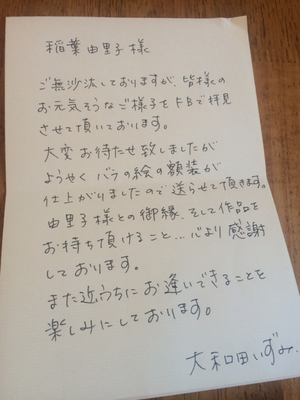 稲葉由里子様
ご無沙汰しておりますが、皆様の
お元気そうなご様子をFBで拝見
させて頂いております。
大変お待たせ致しましたが
ようやくバラの絵の額装が
仕上がりましたので送らせて頂きます。
由里子様との御縁、そして作品を
お持ち頂けること…心より感謝
しております。
また近うちにお逢いできることを
楽しみにしております。
大和田いずみ